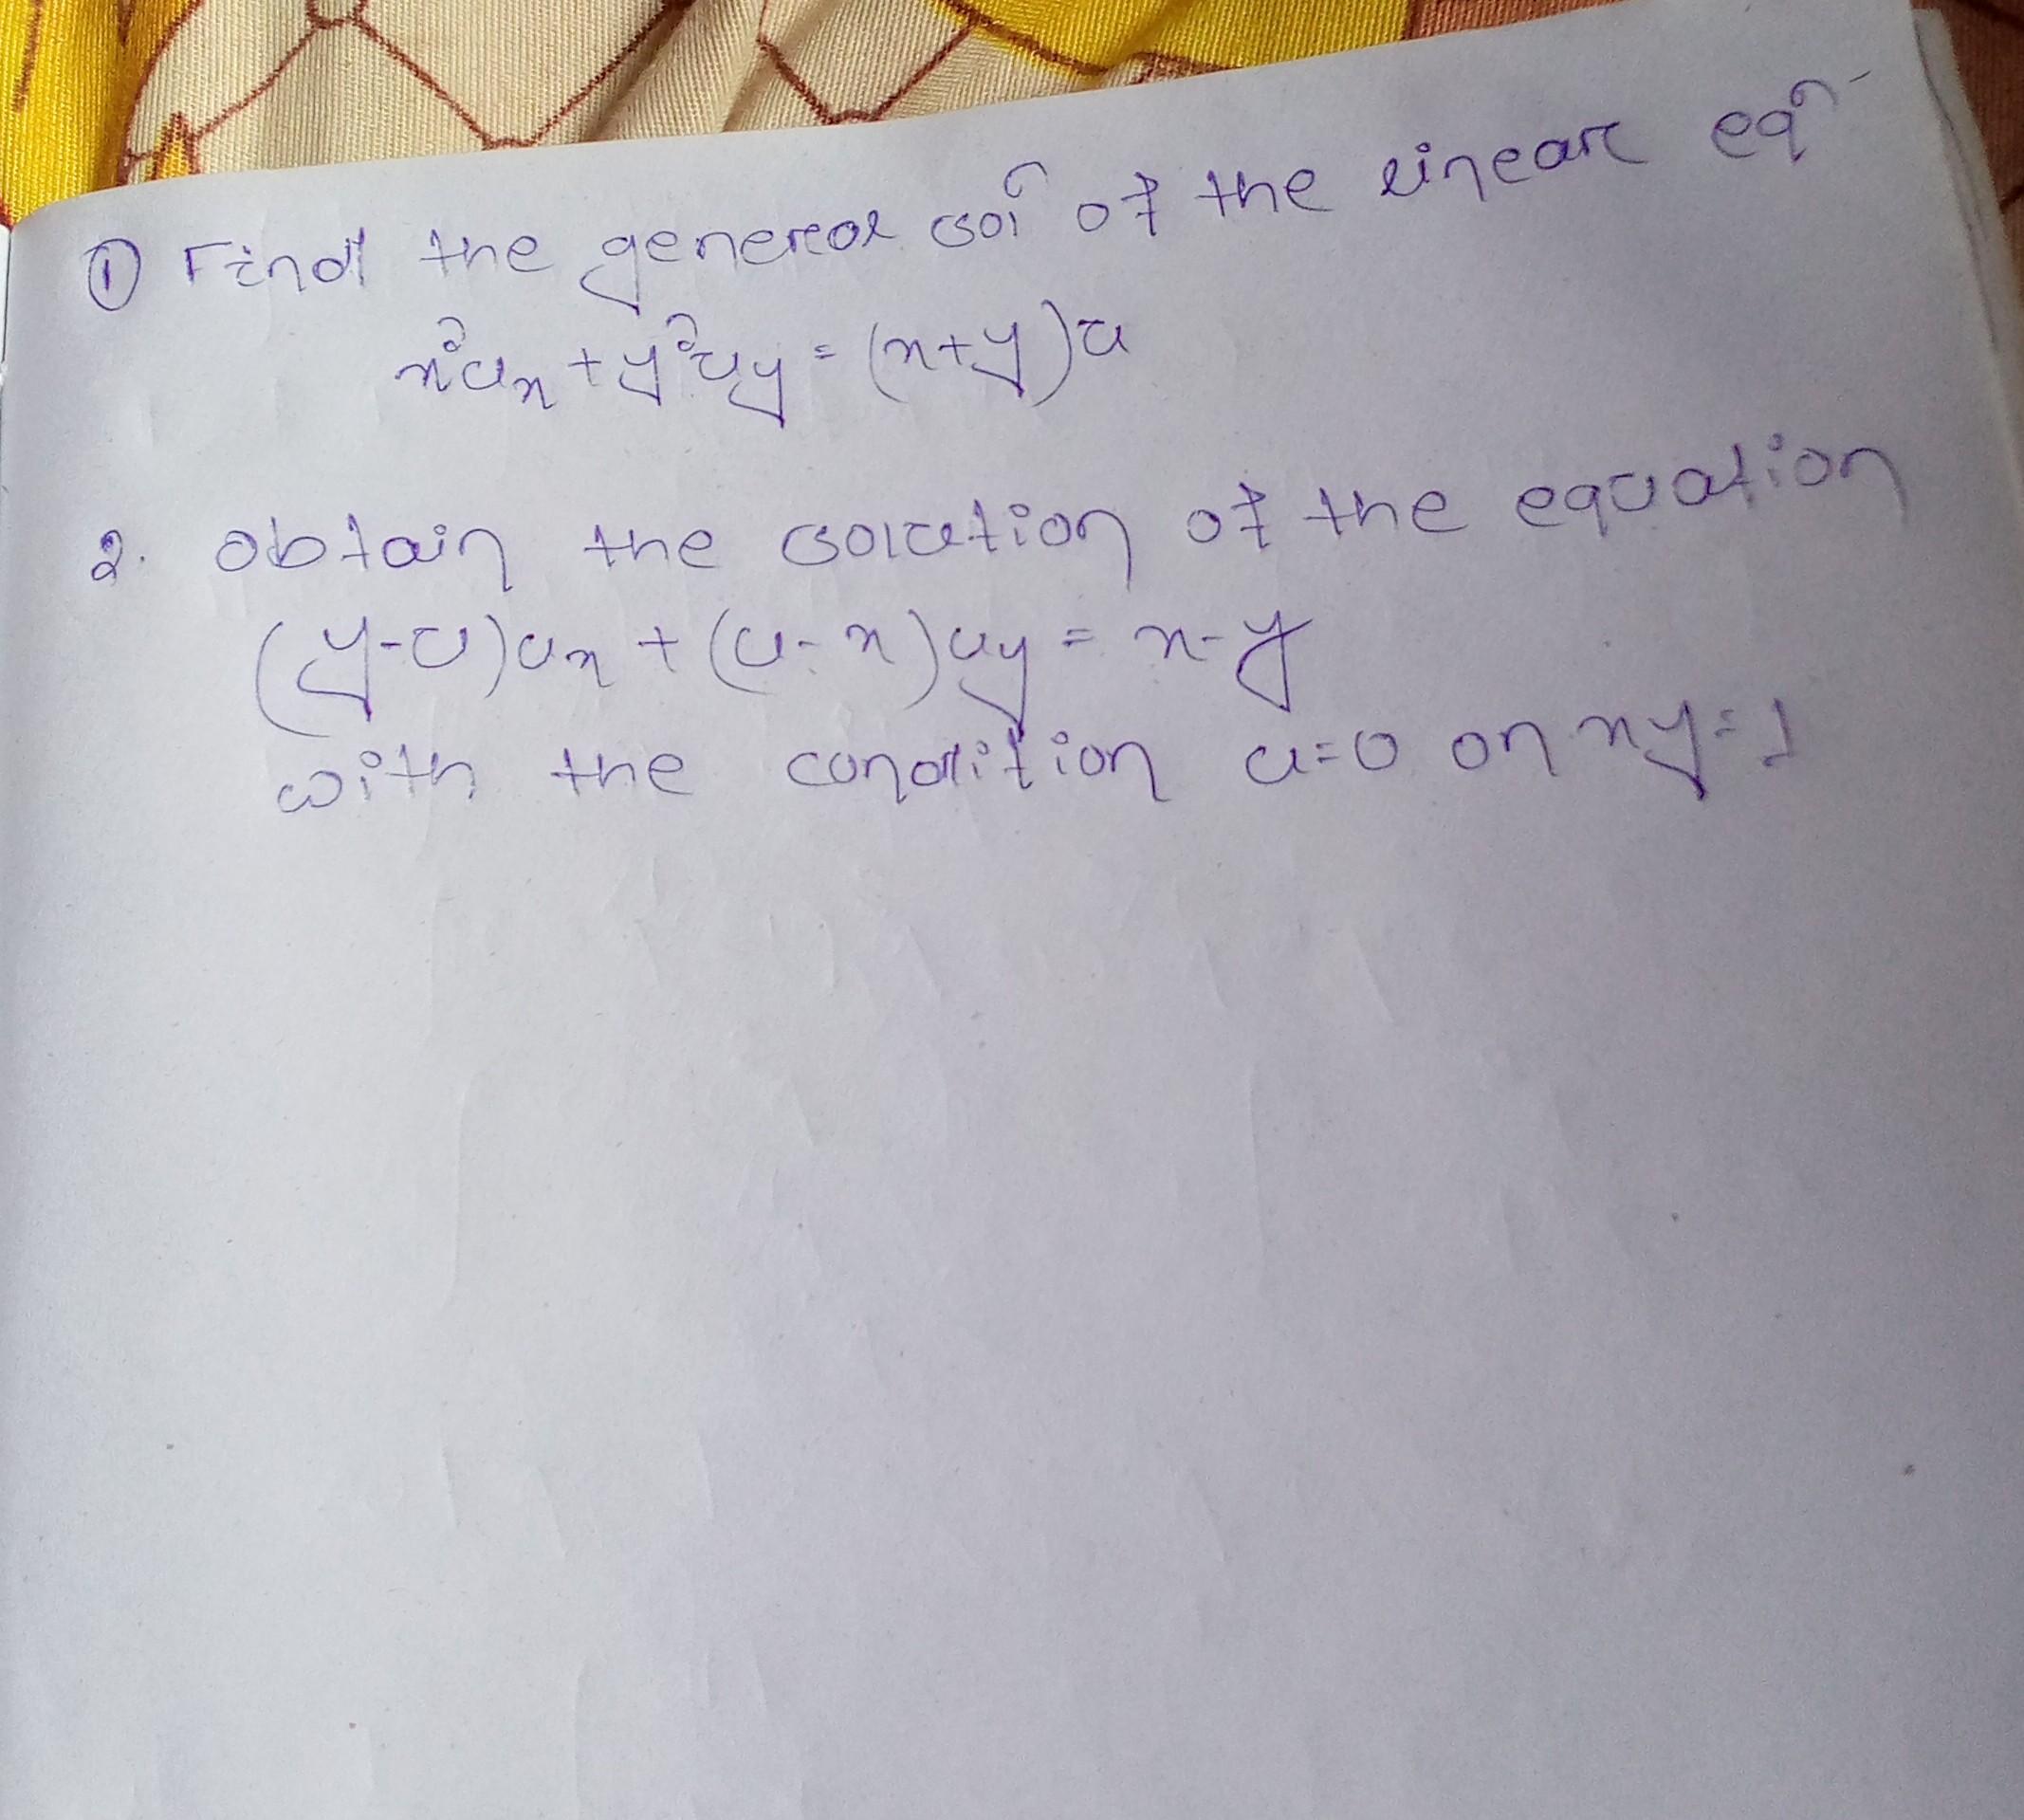 ① Find the general solⁿ of the linear eqⁿ
x²uₓ + y²u_y = (x+y)u
2. obtain the solution of the equation
(y-u)uₓ + (u-x)u_y = x-y
with the condition u=0 on xy=1